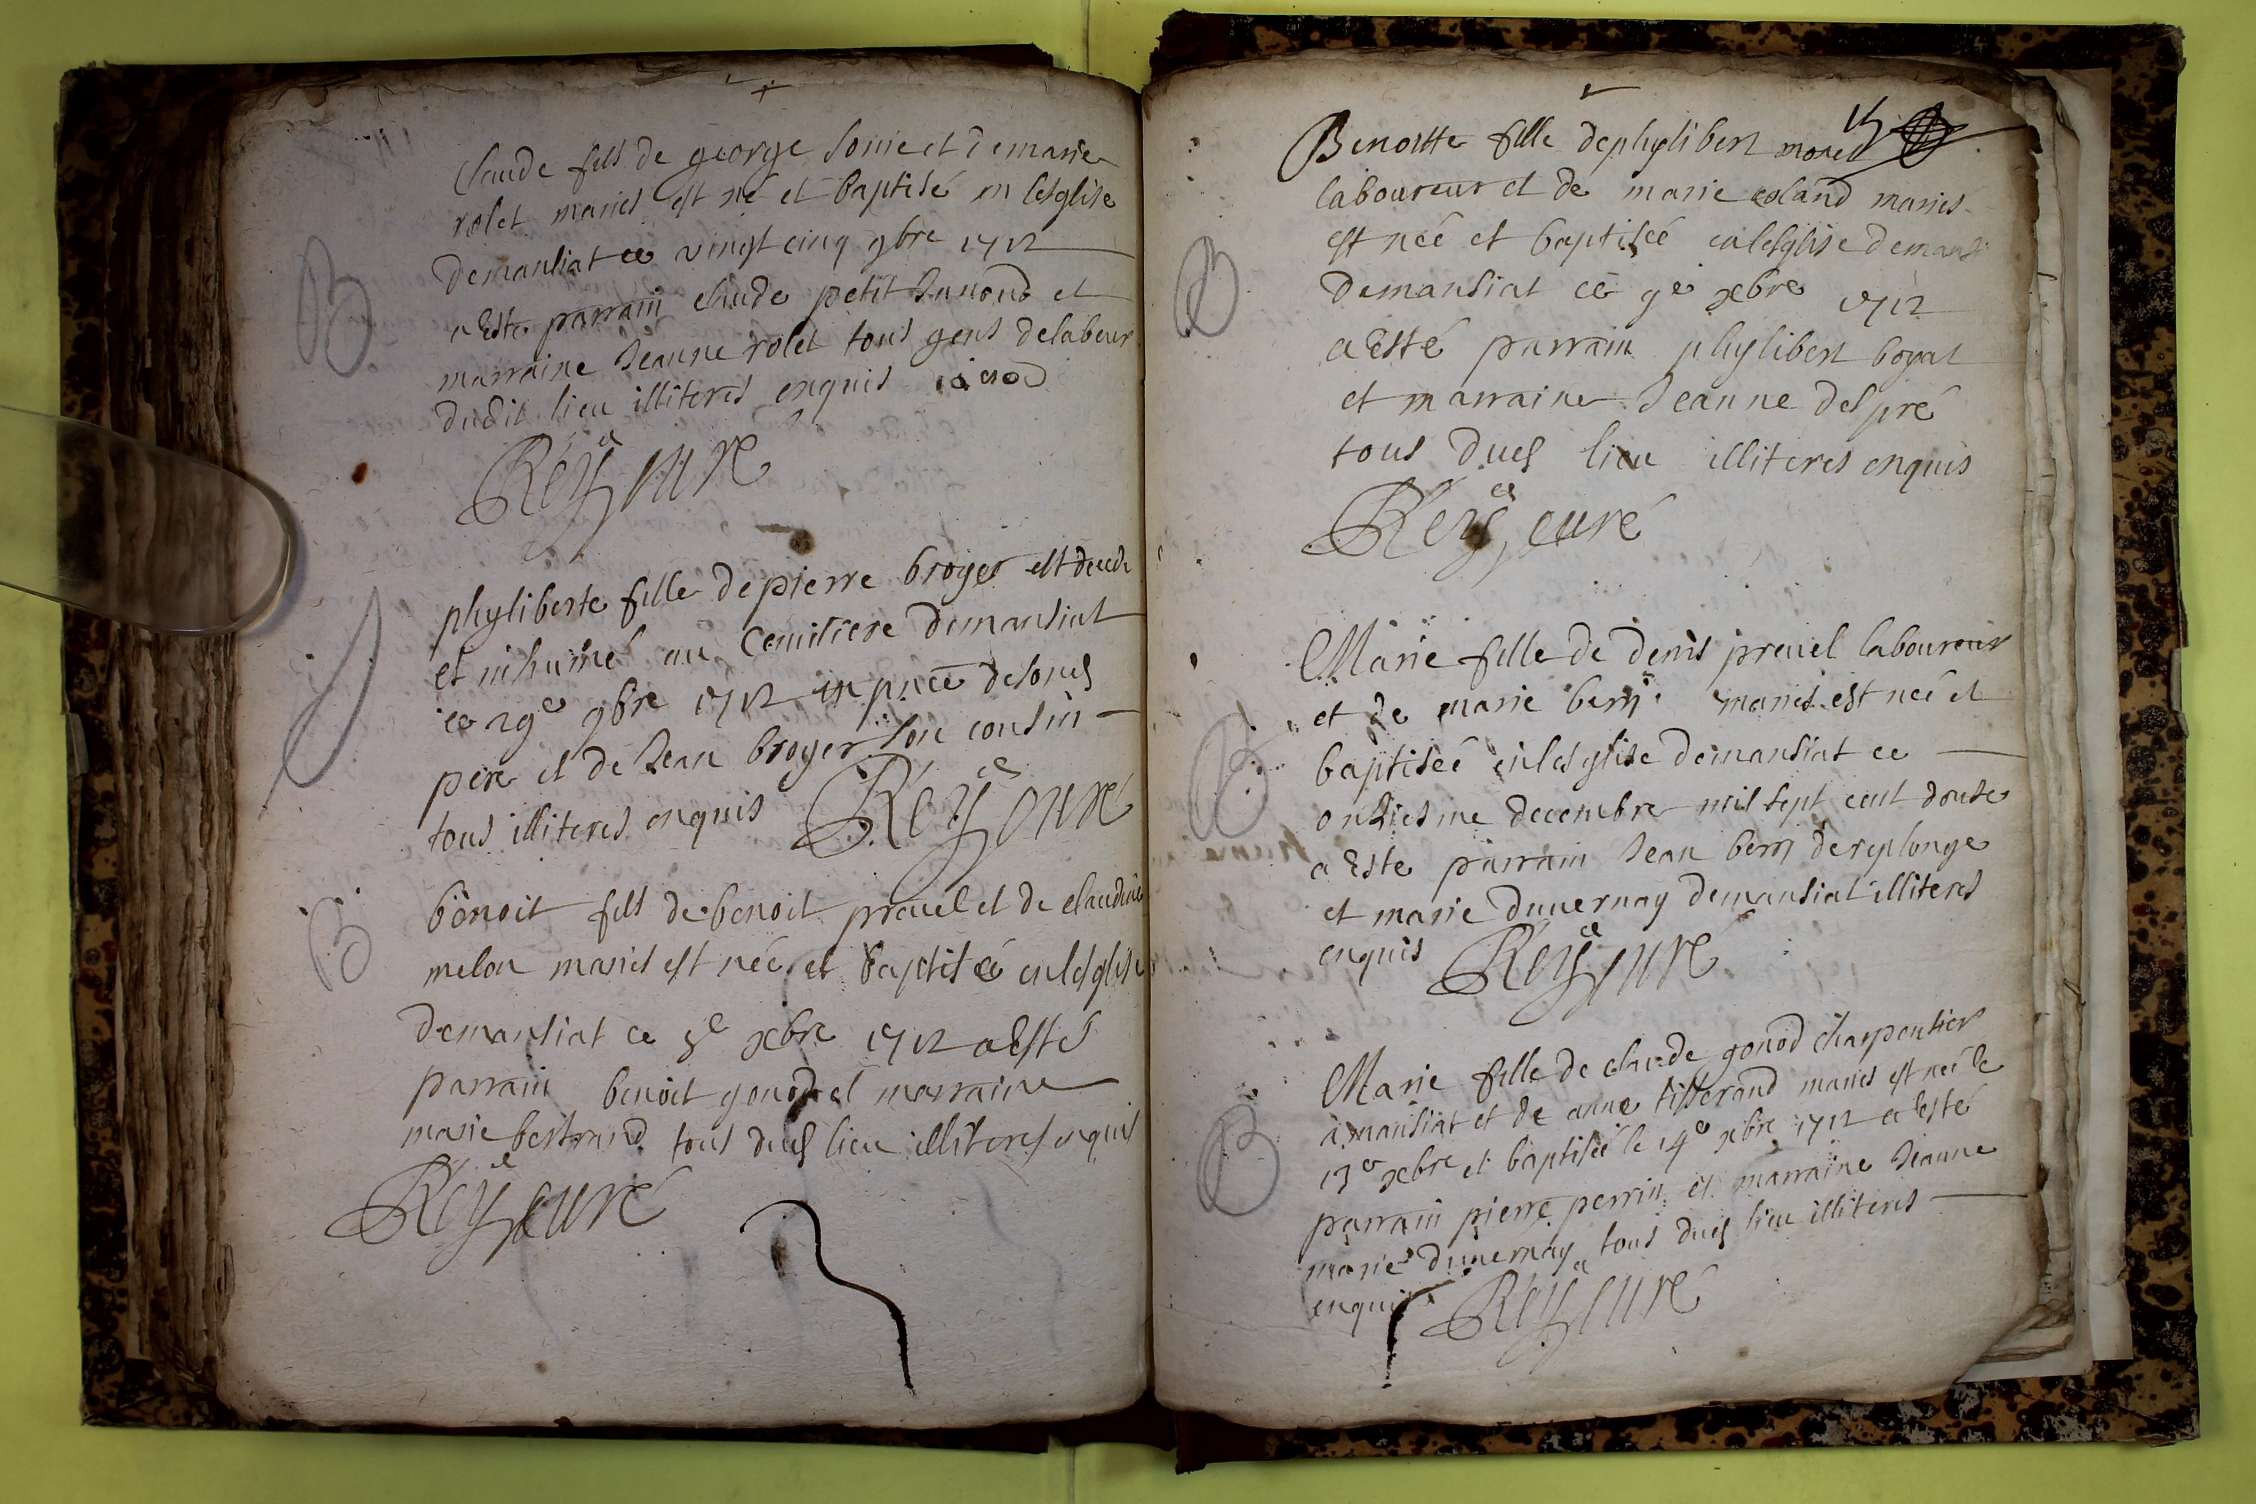 Claude fils de george Sonie et de marie
rolet mariés est né et baptisé en lesglise
demansiat ce vingt cinq 9bre 1712
a esté parrain claude petit Junond et
marraine Jeanne rolet tous gens delabeur
dudit lieu illiteres enquis
Reÿ curé
B
phyliberte fille de pierre broyer est decede
et inhumé au Cemitiere demansiat
ce 29e 9bre 1712 en pnce de sond
pere et de Jean broyer son cousin
tous illiteres enquis Reÿ curé
benoit fils de benoit preuel et de claudine
melon mariés est née et baptisée en lesglise
demansiat ce 5e xbre 1712 a estés
parrain benoit gonod et marraine
marie bertrand tous dud lieu illiteres enquis
Reÿ curé
B
15
Benoitte fille de phylibert morel
laboureur et de marie coland mariés
est neé et baptiseé en lesglise demansi
demansiat ce 9e xbre 1712
a esté parrain phylibert boyat
et marraine Jeanne despré
tous dud lieu illiteres enquis
Reÿ curé
B
Marie fille de denis preuel laboureur
et de marie berry mariés est neé et
baptiseé en lesglise demansiat ce
onziesme decembre mil sept cent douse
a este parrain Jean berry de replonge
et marie duuernay demansiat illiteres
enquis Reÿ curé
B
Marie fille de claude gonod charpentier
a mansiat et de anne tisserand mariés est neé le
13e xbre et baptiseé le 14e xbre 1712 a esté
parrain pierre perrin et marraine Jeanne
marie duuernay tous dud lieu illiteres
enquis Reÿ curé
B